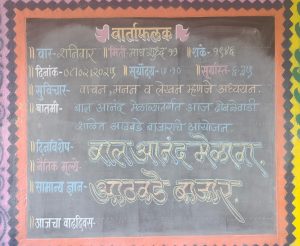 वार्ताफलक
॥ वार - शनिवार ॥ मिती माघ शुद्ध ११ ॥ शके - १९४६
॥ दिनांक - ०८।०२।२०२५ ॥ सूर्योदय - ७.१० ॥ सूर्यास्त ६.३५
॥ सुविचार - वाचन, मनन व लेखन म्हणजे अध्ययन.
॥ बातमी - बाल आनंद मेळाव्यांतर्गत आज
शाळेत आठवडे बाजाराचे आयोजन.
॥ दिनविशेष - बाल आनंद मेळावा.
॥ नैतिक मूल्ये -
॥ सामान्य ज्ञान - आठवडे बाजार.
॥ आजचा वाढदिवस -